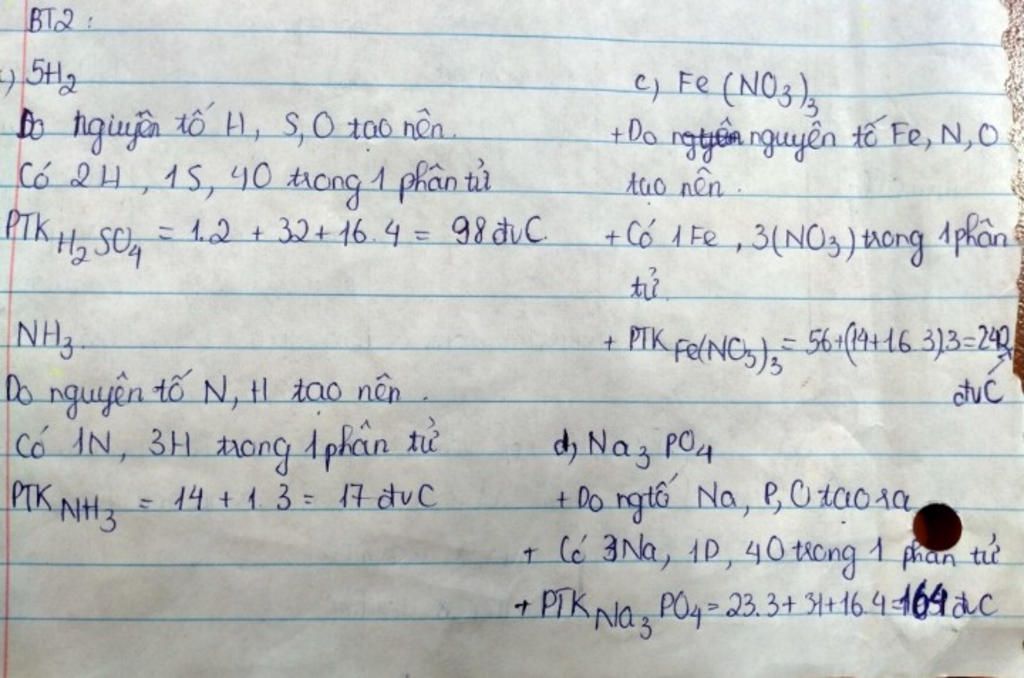 BT2:
) 5H₂
Do ngiuyên tố H, S, O tạo nên.
Có 2H, 1S, 4O trong 1 phân tử
PTK H₂SO₄ = 1.2 + 32 + 16.4 = 98 đvC.
NH₃.
Do nguyên tố N, H tạo nên.
Có 1N, 3H trong 1 phân tử
PTK NH₃ = 14 + 1.3 = 17 đvC
c) Fe(NO₃)₃
+ Do nguyên tố Fe, N, O
tạo nên.
+ Có 1Fe, 3(NO₃) trong 1 phân
tử.
+ PTK Fe(NO₃)₃ = 56+(14+16.3).3=242
đvC
d) Na₃PO₄
+ Do ngtố Na, P, O tạo ra
+ Có 3Na, 1P, 4O trong 1 phân tử
+ PTK Na₃PO₄ = 23.3+31+16.4=164 đvC